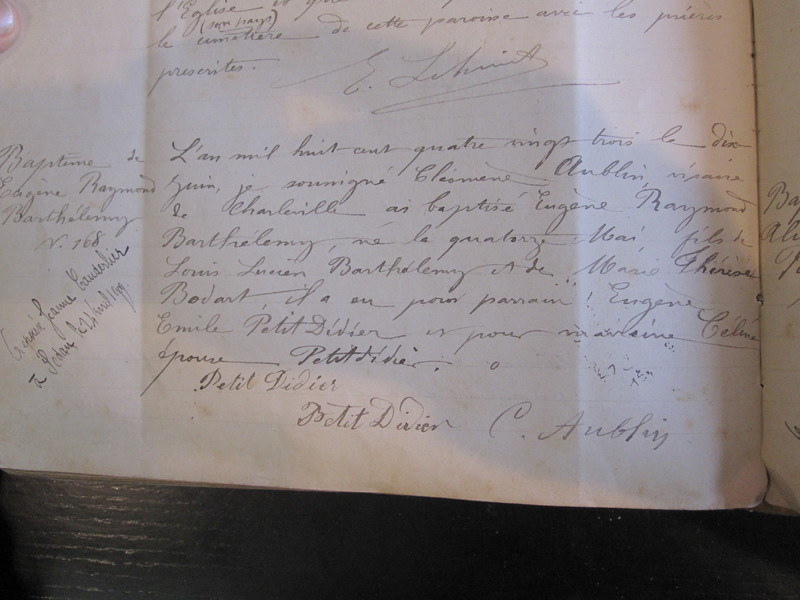 l'Eglise et
(son pays)
le cimetière de cette paroisse avec les prières
prescrites.
E.
Baptême de
Eugène Raymond
Barthélemy
N. 168
à Sedan le 21 avril
L'an mil huit cent quatre vingt trois le dix
Juin, je soussigné Cléomène Aublin, vicaire
de Charleville ai baptisé Eugène Raymond
Barthélemy, né le quatorze Mai, fils de
Louis Lucien Barthélemy et de Marie Thérèse
Bodart, il a eu pour parrain Eugène
Emile Petit Didier et pour marraine Céline
épouse Petitdidier.
Petit Didier
Petit Didier
C. Aublin